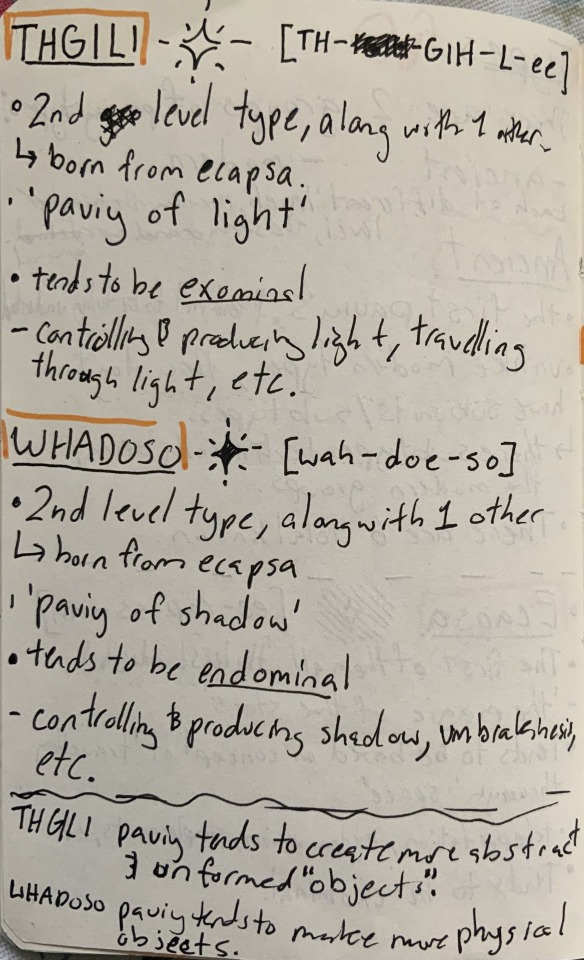 THGILI - - [TH- -GIH-L-ee]
• 2nd level type, along with 1 other.
↳ born from ecapsa.
• 'paviy of light'
• tends to be exominal
- controlling & producing light, travelling
through light, etc.
WHADOSO - - [wah-doe-so]
• 2nd level type, along with 1 other
↳ born from ecapsa
• 'paviy of shadow'
• tends to be endominal
- controlling & producing shadow, umbrakinesis,
etc.
THGLI paviy tends to create more abstract
& unformed "objects".
WHADOSO paviy tends to make more physical
objects.